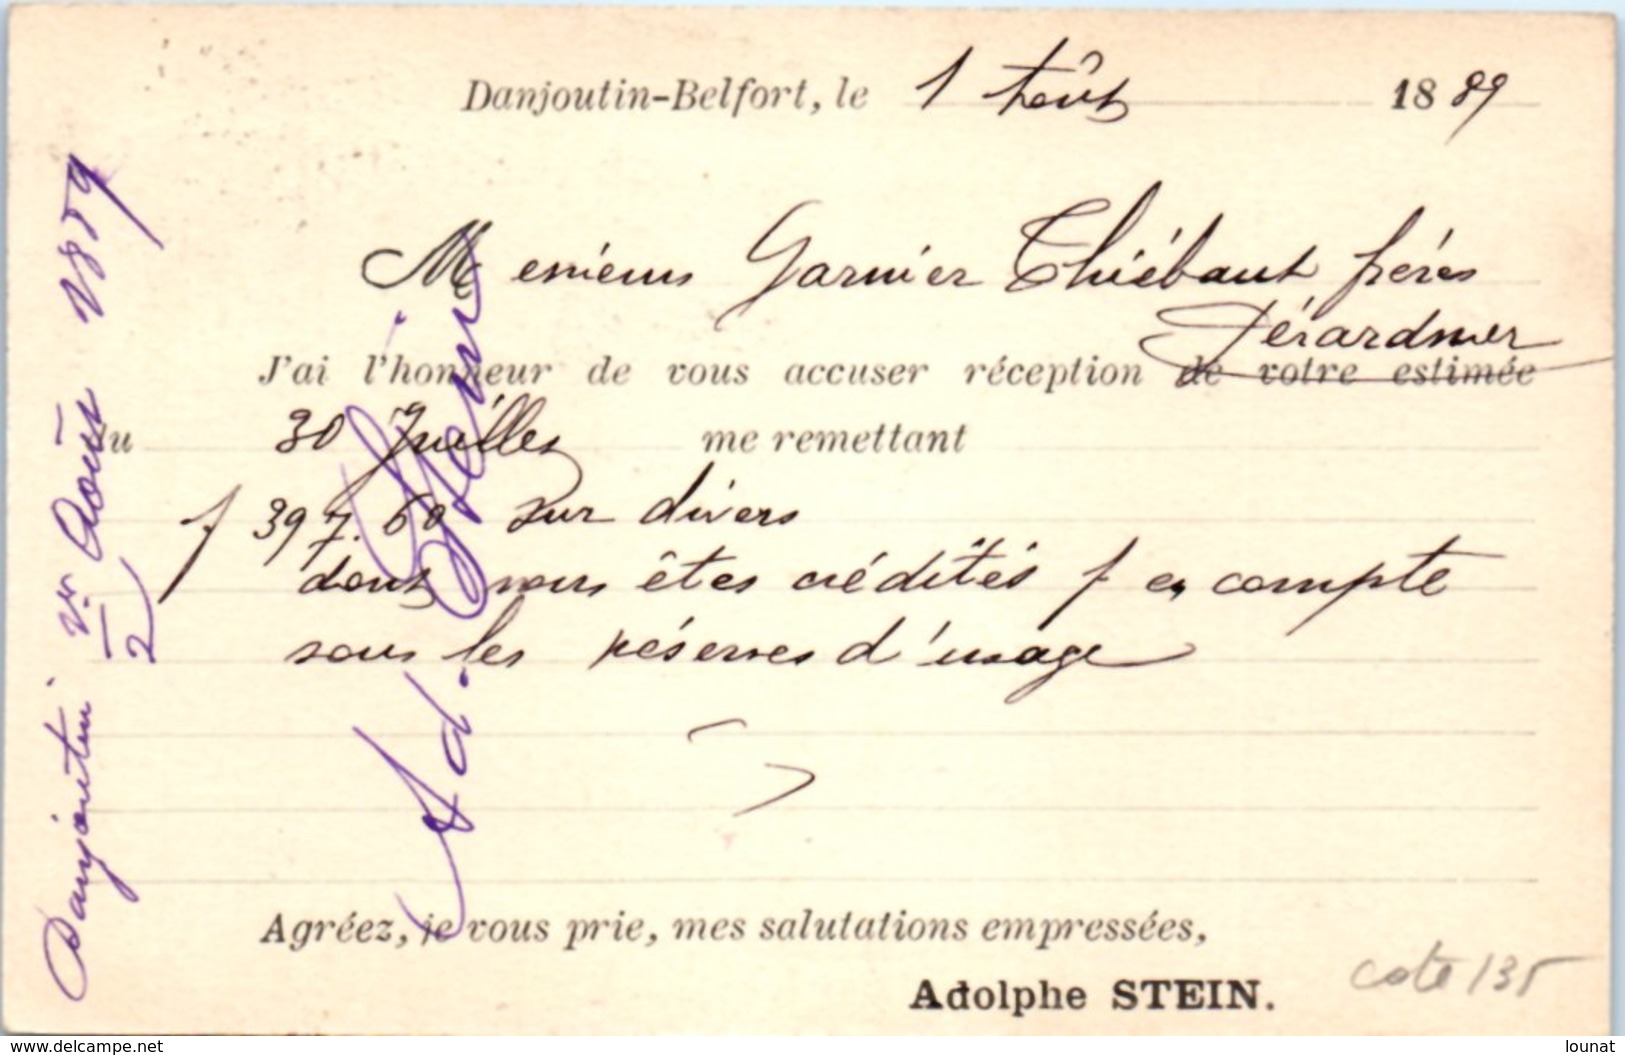 Danjoutin-Belfort, le 1 Août 1889
Messieurs Garnier Thiébaut frères
Gérardmer
J'ai l'honneur de vous accuser réception de votre estimée
du 30 Juillet me remettant
f 397.60 sur divers
dont vous êtes crédités f en compte
sous les réserves d'usage
Agréez, je vous prie, mes salutations empressées,
Adolphe STEIN.
cote 135
Danjoutin 1er Août 1889
2
Ad. Stein
www.delcampe.net
lounat